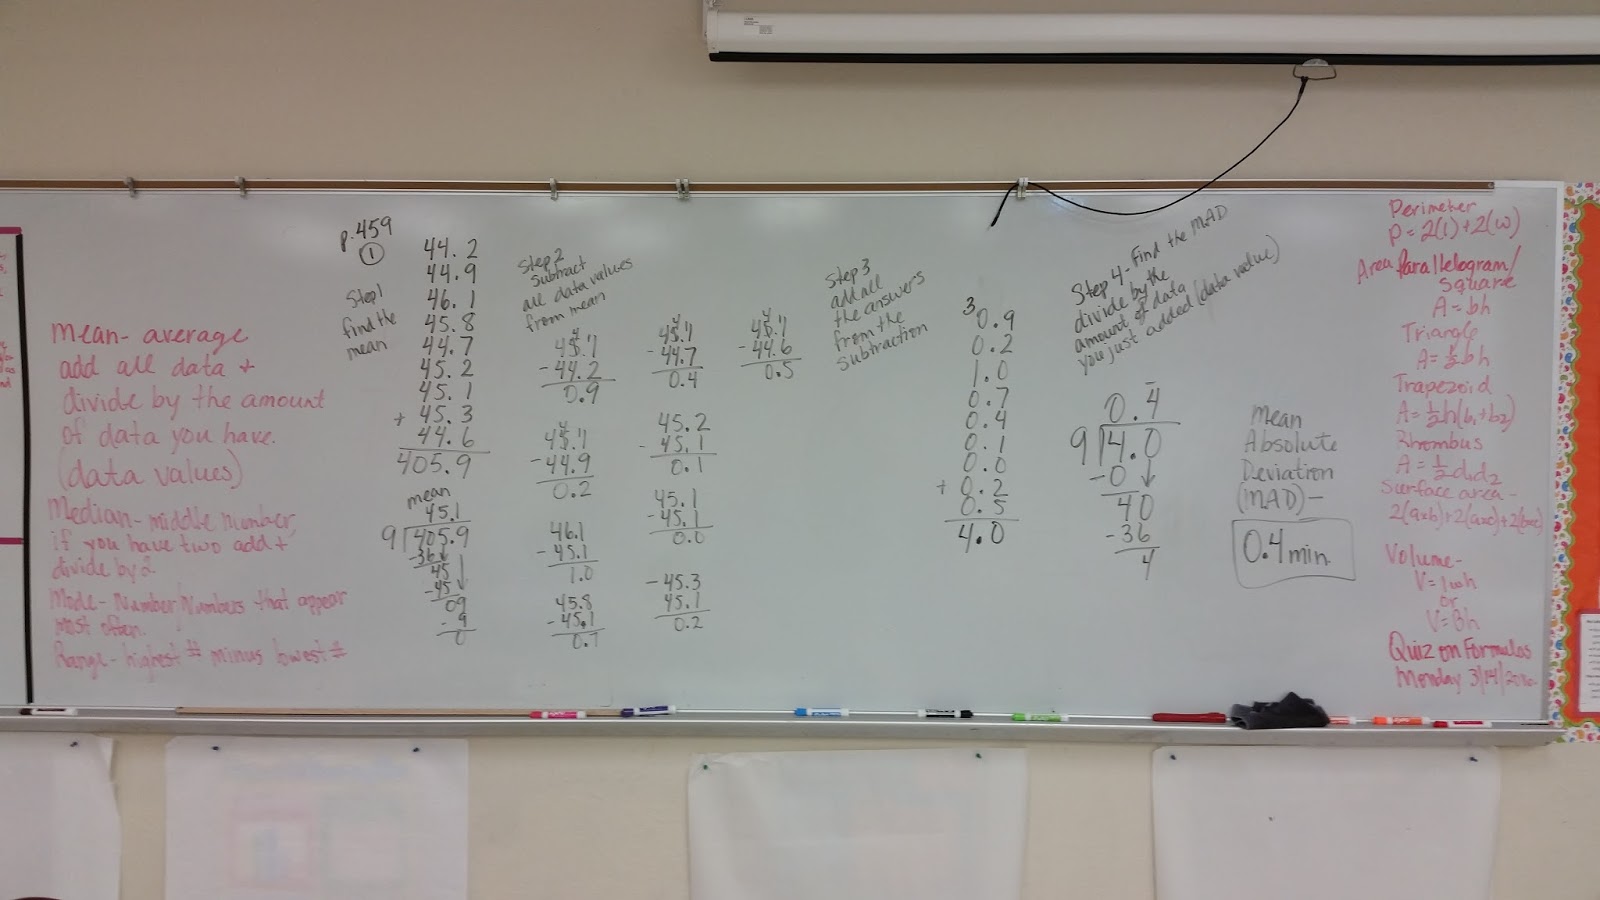 mean- average
add all data +
divide by the amount
of data you have.
(data values)
Median- middle number,
if you have two add +
divide by 2
Mode- Number/Numbers that appear
most often.
Range- highest # minus lowest #
p.459
1
Step 1
find the
mean
44.2
44.9
46.1
45.8
44.7
45.2
45.1
+ 45.3
44.6
405.9
mean
45.1
9 405.9
-36
45
-45
09
-9
0
Step 2
Subtract
all data values
from mean
45.1
-44.2
0.9
45.1
-44.9
0.2
46.1
-45.1
1.0
45.8
-45.1
0.7
45.1
-44.7
0.4
45.2
-45.1
0.1
45.1
-45.1
0.0
-45.3
45.1
0.2
45.1
-44.6
0.5
Step 3
add all
the answers
from the
Subtraction
3
0.9
0.2
1.0
0.7
0.4
0.1
0.0
+ 0.2
0.5
4.0
Step 4- Find the MAD
divide by the
amount of data
you just added (data value)
0.4
9 4.0
-0
40
-36
4
Mean
Absolute
Deviation
(MAD)-
0.4 min
Perimeter
P = 2(l) + 2(w)
Area Parallelogram/
Square
A = bh
Triangle
A = ½bh
Trapezoid
A = ½h(b₁+b₂)
Rhombus
A = ½d₁d₂
Surface area-
2(axb)+2(axc)+2(bxc)
Volume-
V = lwh
or
V = Bh
Quiz on Formulas
Monday 3/14/2016